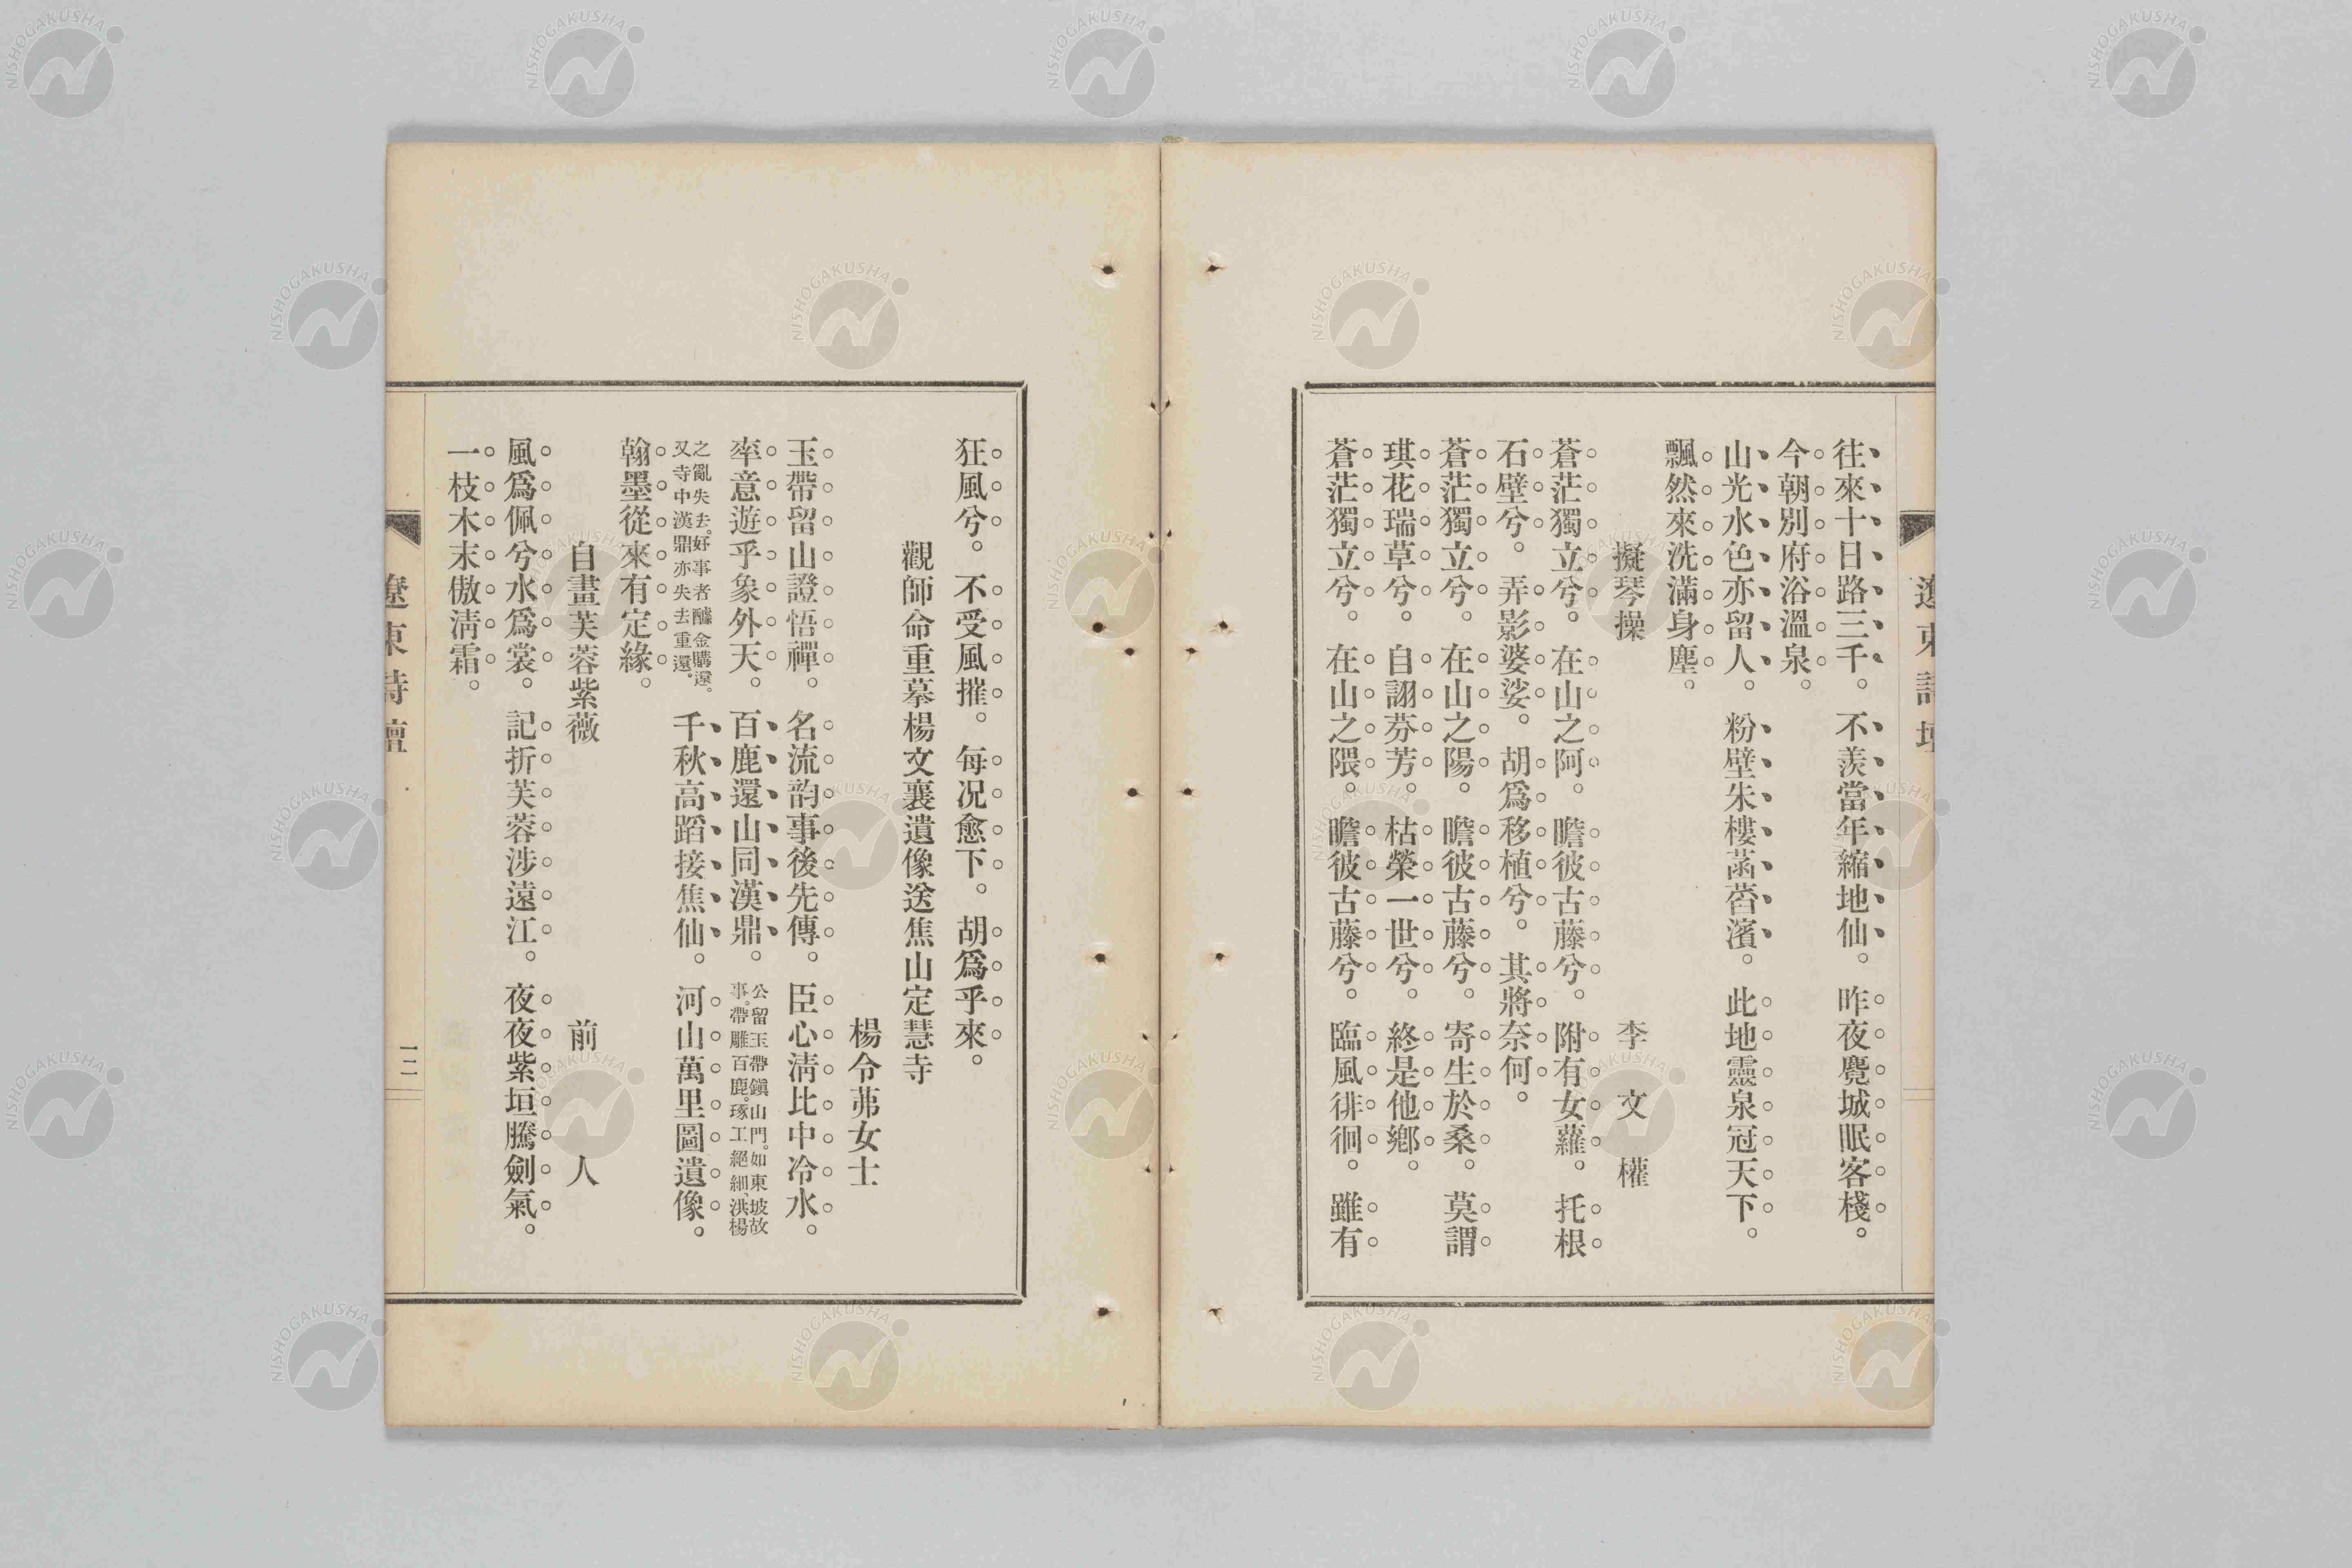 往來十日路三千。不羨當年縮地仙。昨夜甍城眠客棧。
今朝別府浴溫泉。
山光水色亦留人。粉壁朱樓菡萏濱。此地靈泉冠天下。
飄然來洗滿身塵。
擬琴操 李文權
蒼茫獨立兮。在山之阿。瞻彼古藤兮。附有女蘿。托根
石壁兮。弄影婆娑。胡爲移植兮。其將奈何。
蒼茫獨立兮。在山之陽。瞻彼古藤兮。寄生於桑。莫謂
琪花瑞草兮。自詡芬芳。枯榮一世兮。終是他鄉。
蒼茫獨立兮。在山之隈。瞻彼古藤兮。臨風徘徊。雖有
遼東詩壇
狂風兮。不受風摧。每况愈下。胡爲乎來。
觀師命重摹楊文襄遺像送焦山定慧寺
楊令茀女士
玉帶留山證悟禪。名流韵事後先傳。臣心淸比中冷水。
率意遊乎象外天。百鹿還山同漢鼎。公留玉帶鎭山門。如東坡故
事。帶雕百鹿。琢工絕細。洪楊
之亂失去。好事者醵金購還。
又寺中漢鼎亦失去重還。
千秋高蹈接焦仙。河山萬里圖遺像。
翰墨從來有定緣。
自畫芙蓉紫薇 前人
風爲佩兮水爲裳。記折芙蓉涉遠江。夜夜紫垣騰劍氣。
一枝木末傲淸霜。
遼東詩壇 一二
NISHOGAKUSHA